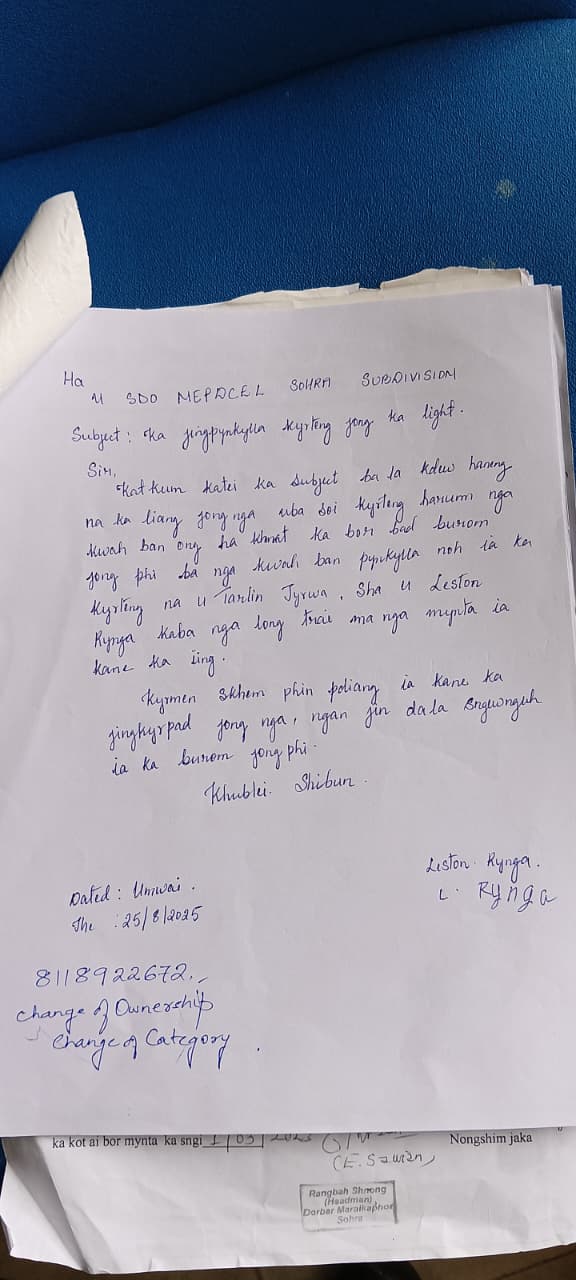 Ha
U SDO MEPDCEL SOHRA SUBDIVISION
Subject: Ka jingpynkylla kyrteng jong ka light.
Sir,
Katkum katei ka subject ba la kdew haneng
na ka liang jong nga uba soi kyrteng harum nga
kwah ban ong ha khmat ka bor bad burom
jong phi ba nga kwah ban pynkylla noh ia ka
kyrteng na u Tarlin Jyrwa, Sha u Leston
Rynga kaba nga long trai ma nga mynta ia
kane ka iing.
Kyrmen skhem phin pdiang ia kane ka
jingkyrpad jong nga, ngan jin da la sngewnguh
ia ka burom jong phi.
Khublei Shibun.
Leston Rynga.
L. Rynga
Dated: Umwai.
The : 25/8/2025
8118922672.
Change of Ownership
Change of Category.
ka kot ai bor mynta ka sngi 1/03/2023 Nongshim jaka
(E. Sawian)
Rangbah Shnong
(Headman)
Dorbar Maraikaphon
Sohra